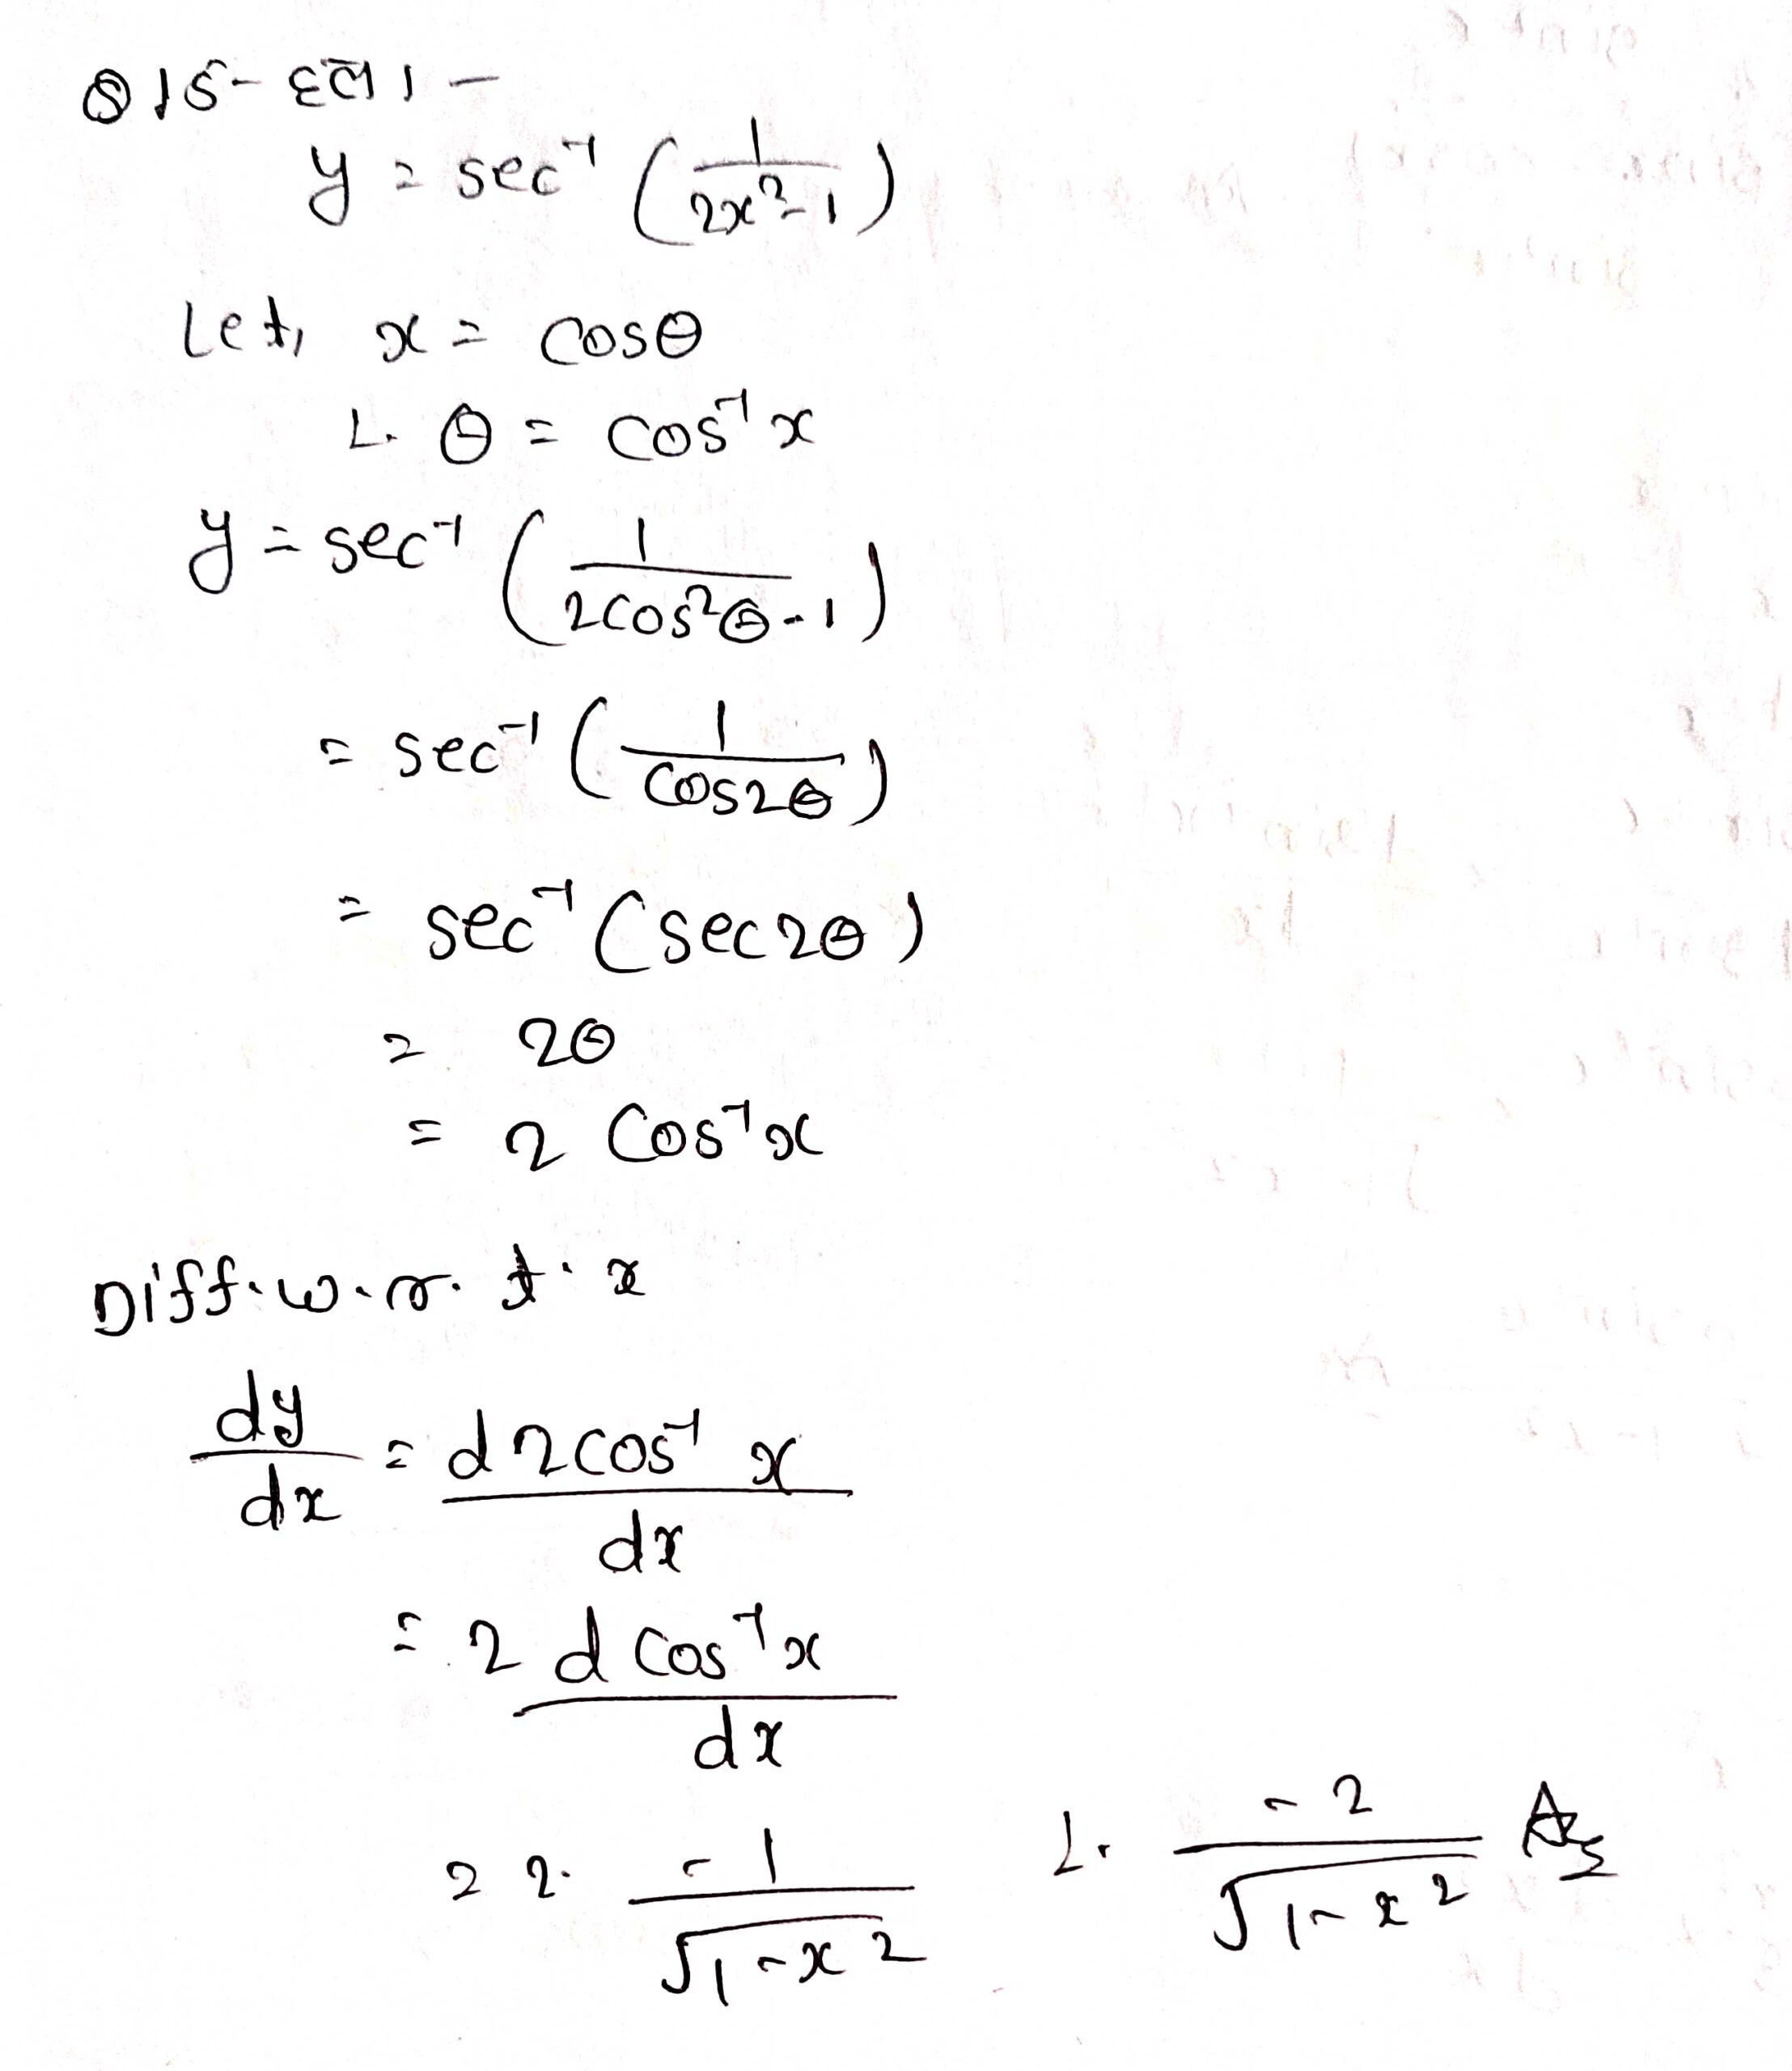 15-
y = sec⁻¹ (1/(2x²-1))
Let, x = cosθ
∴ θ = cos⁻¹x
y = sec⁻¹ (1/(2cos²θ-1))
= sec⁻¹ (1/cos2θ)
= sec⁻¹ (sec2θ)
= 2θ
= 2 cos⁻¹x
Diff. w. r. t. x
dy/dx = d 2cos⁻¹ x/dx
= 2 d cos⁻¹x/dx
= 2. -1/√(1-x²) ∴ -2/√(1-x²) Ans